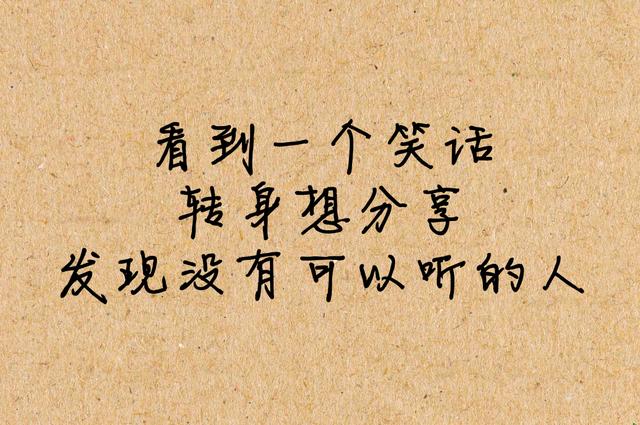 看到一个笑话
转身想分享
发现没有可以听的人